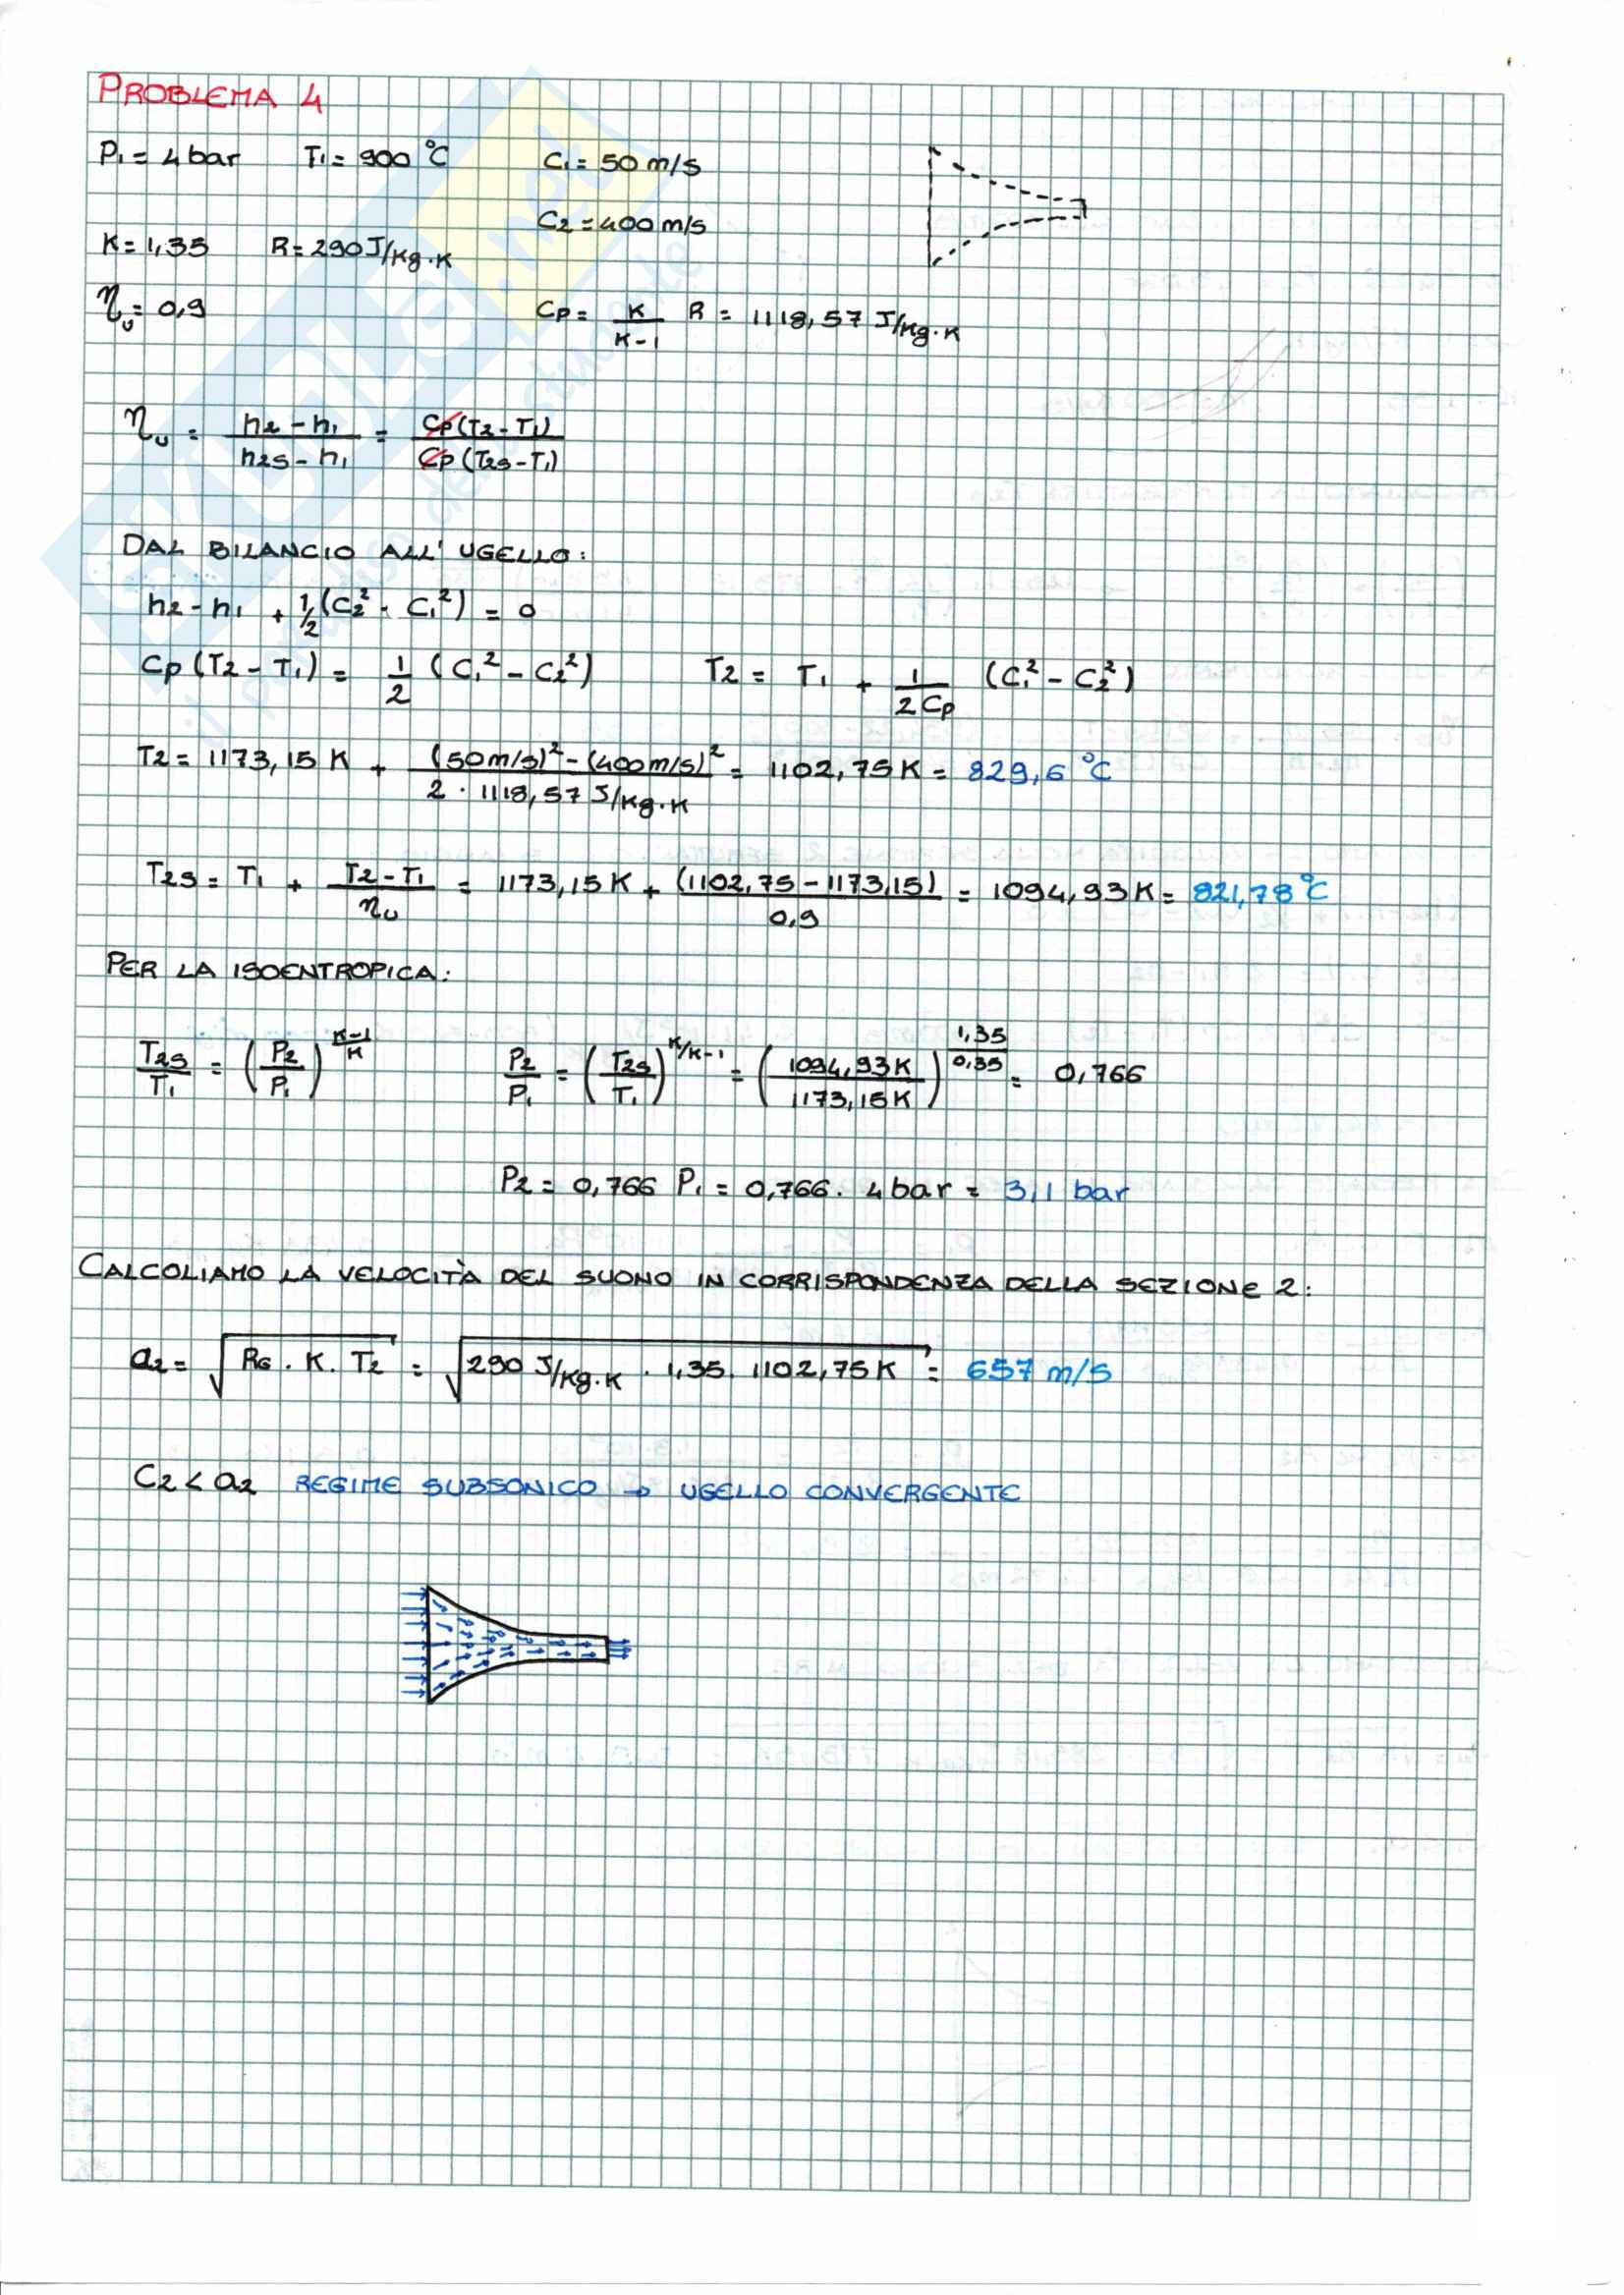 PROBLEMA 4
P1 = 4 bar T1 = 900 °C C1 = 50 m/s
C2 = 400 m/s
K = 1,35 R = 290 J/kg·K
ηu = 0,9 Cp = K/(K-1) R = 1118,57 J/kg·K
ηu = (h2 - h1)/(h2s - h1) = Cp(T2 - T1)/Cp(T2s - T1)
DAL BILANCIO ALL' UGELLO:
h2 - h1 + 1/2 (C2² - C1²) = 0
Cp (T2 - T1) = 1/2 (C1² - C2²) T2 = T1 + 1/(2Cp) (C1² - C2²)
T2 = 1173,15 K + ((50 m/s)² - (400 m/s)²)/(2 · 1118,57 J/kg·K) = 1102,75 K = 829,6 °C
T2s = T1 + (T2 - T1)/ηu = 1173,15 K + (1102,75 - 1173,15)/0,9 = 1094,93 K = 821,78 °C
PER LA ISOENTROPICA:
T2s/T1 = (P2/P1)^((K-1)/K) P2/P1 = (T2s/T1)^(K/K-1) = (1094,93 K/1173,15 K)^(1,35/0,35) = 0,766
P2 = 0,766 P1 = 0,766 · 4 bar = 3,1 bar
CALCOLIAMO LA VELOCITÀ DEL SUONO IN CORRISPONDENZA DELLA SEZIONE 2:
a2 = √(RG · K · T2) = √(290 J/kg·K · 1,35 · 1102,75 K) = 657 m/s
C2 < a2 REGIME SUBSONICO → UGELLO CONVERGENTE